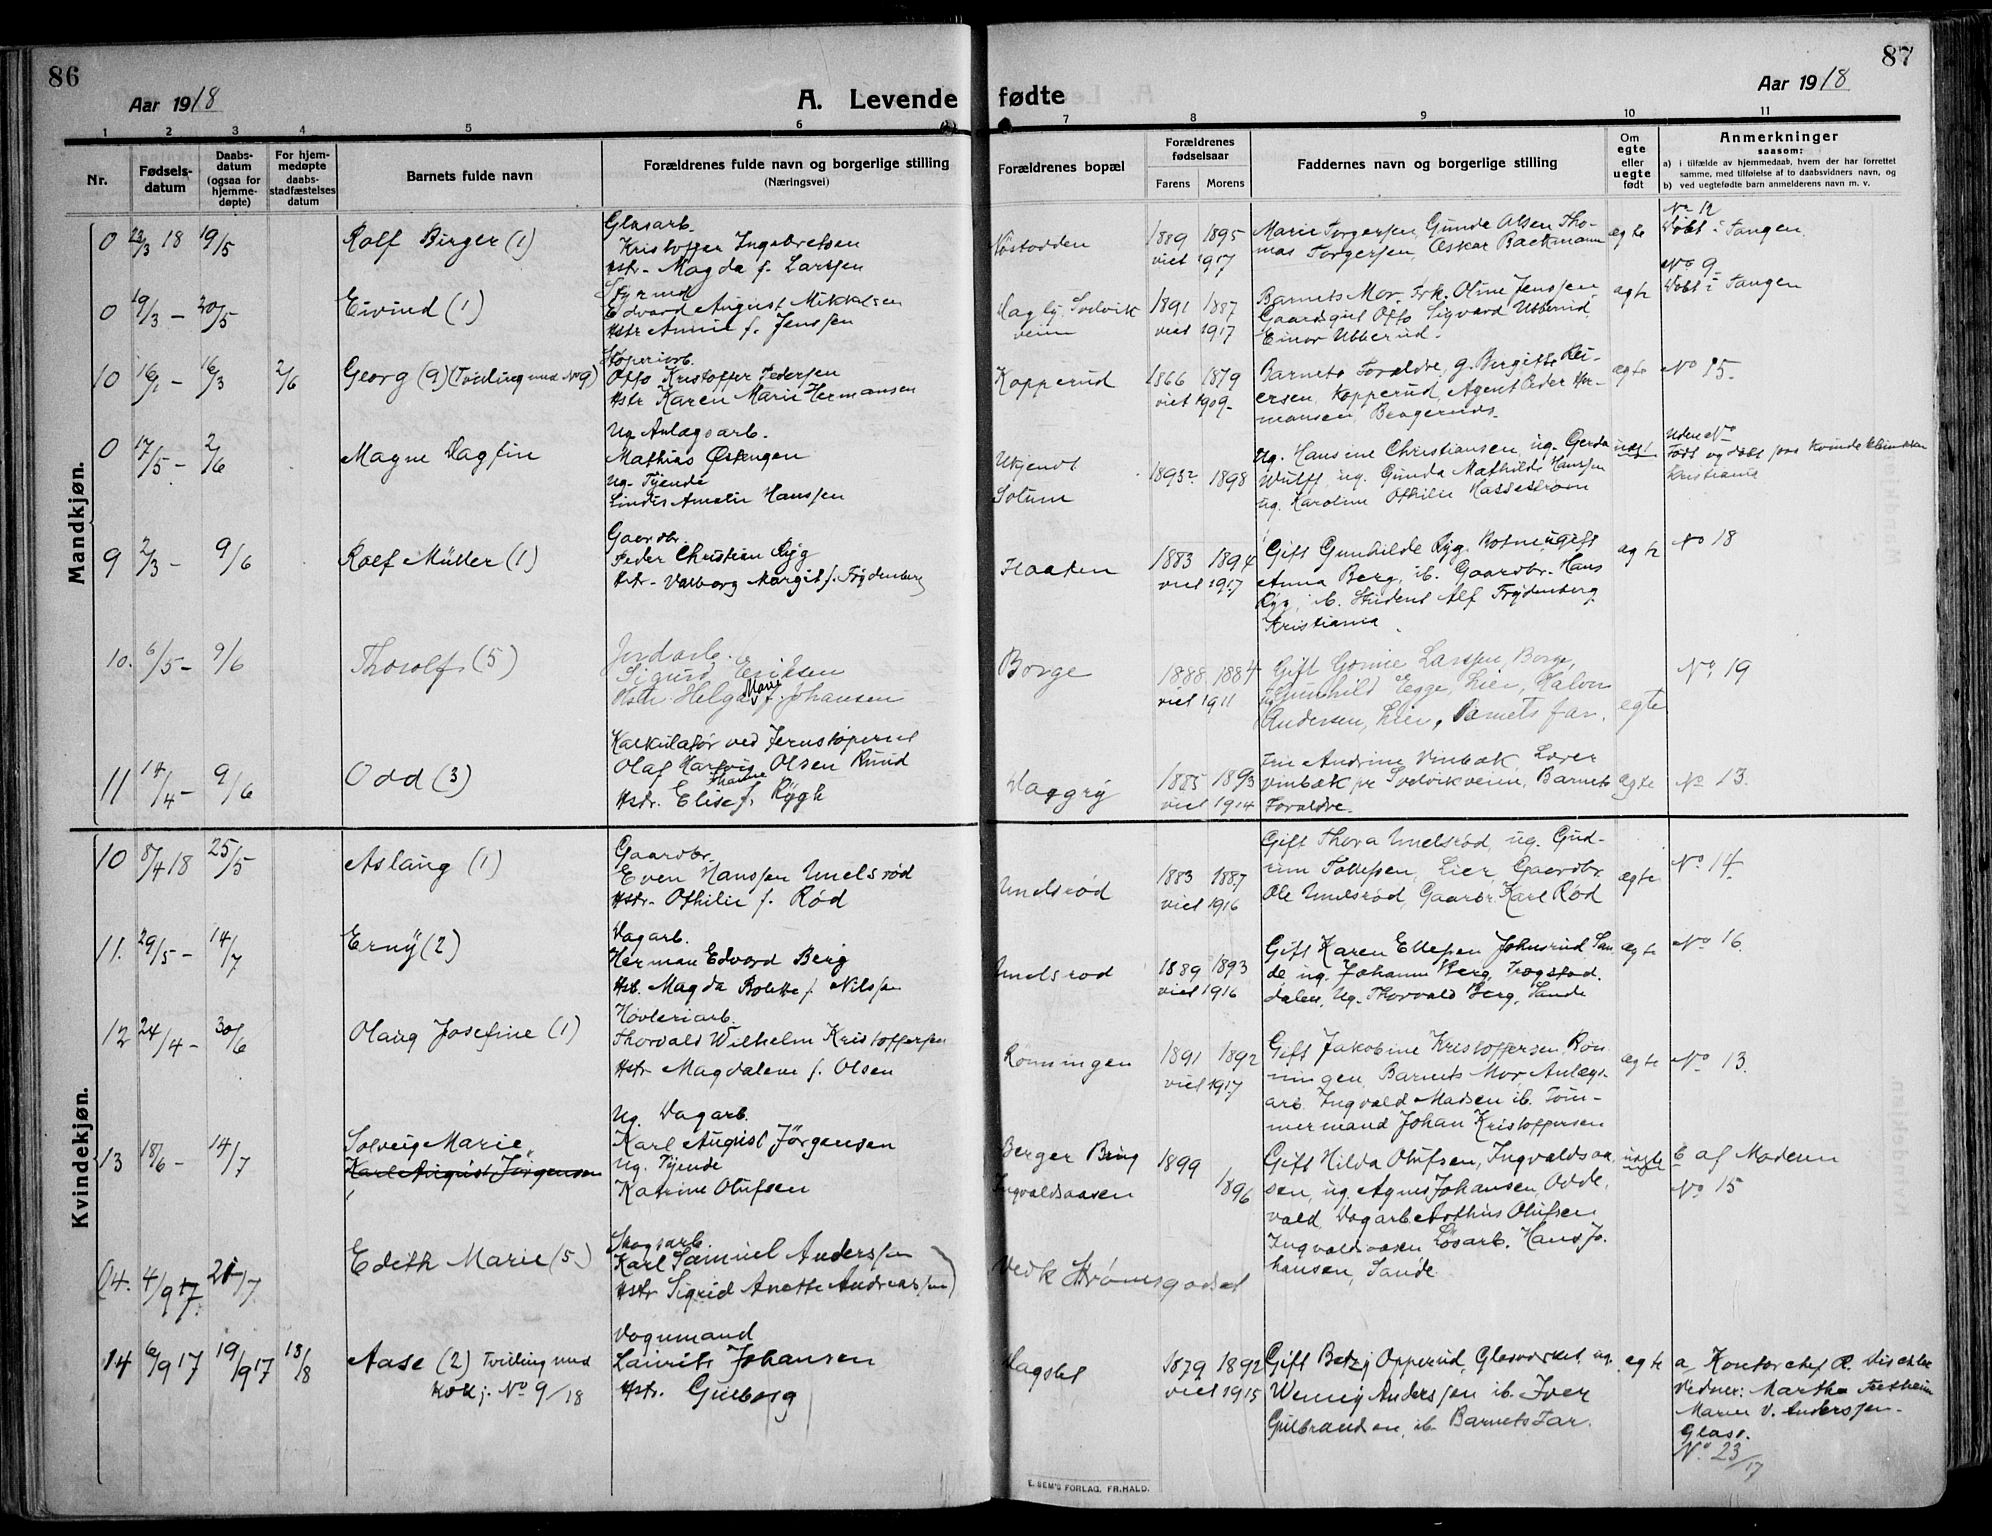 86
Aar 1918
A. Levende
1 2 3 4 5 6
Nr.
Fødsels-
datum
Daabs-
datum
(ogsaa for
hjemme-
døpte)
For hjem-
medøpte
daabs-
stadfæstelses
datum
Barnets fulde navn
Forældrenes fulde navn og borgerlige stilling
(Næringsvei)
Mandkjøn.
0 23/3 18 19/5
Rolf Birger (1)
Glasarb.
Kristoffer Ingebretsen
Hstr. Magda f. Larssen
0 19/3 - 20/5
Eivind (1)
Styrmd
Edvard August Mikkelsen
Hstr Annie f. Jenssen
10 16/1 - 16/3 2/6
Georg (9) (Tvilling med No 9)
Støperiarb.
Otto Kristoffer Pedersen
Hstr Karen Marie Hermansen
0 17/5 - 2/6
Magne Dagfin
Ug. Anlægsarb.
Mathias Østengen
Ug. Tjende
Lindis Amalie Hanssen
9 2/3 - 9/6
Rolf Müller (1)
Gaardbr.
Peder Christian Ryg
Hstr. Valborg Margit f. Frydenberg
10. 6/5 - 9/6
Thorolf (5)
Jordarb.
Sigurd Eriksen
Hstr Helga Marie f. Johansen
11 14/4 - 9/6
Odd (3)
Kalkulatør ved Jernstøperiet
Olaf Hartvig Olsen Ruud
Hstr. Elise f. Rygh
Kvindekjøn.
10 8/4 18 25/5
Aslaug (1)
Gaardbr.
Even Hanssen Unelsrød
Hstr. Othilie f. Rød
11. 29/5 - 14/7
Erny (2)
Dagarb.
Herman Edvard Berg
Hst. Magda Bolette f. Nilssen
12 24/4 - 30/6
Olaug Josefine (1)
Høvleriarb.
Thorvald Wilhelm Kristoffersen
Hstr Magdalene f. Olsen
13 18/6 - 14/7
Solveig Marie
Karl August Jørgensen
Ug. Dagarb.
Karl August Jørgensen
Ug. Tjende
Katrine Olufsen
04. 4/9 17 21/7
Edith Marie (5)
Skogsarb.
Karl Samuel Anderssen
Hstr Sigrid Anette Andreassen
14 6/9 17 19/9 17 18/8
Aase (2) Tvilling med
KvKj. No 9/18
Vognmand
Laurits Johansen
Hstr. Gulborg
87
Aar 1918
fødte
7 8 9 10 11
Forældrenes bopæl
Forældrenes
fødselsaar
Farens Morens
Faddernes navn og borgerlige stilling
Om
egte
eller
uegte
født
Anmerkninger
saasom:
a) i tilfælde av hjemmedaab, hvem der har forrettet
samme, med tilføielse af to daabsvidners navn, og
b) ved uegtefødte barn anmelderens navn m. v.
1889 1895
viet 1917
Marie Torgersen, Gunda Olsen Tho-
mas Torgersen, Oskar Backmann
egte
No 12
Døbt i Tangen.
1891 1887
viet 1917
Barnets Mor, Frk. Oline Jenssen
Gaardgut Otto Sigvard Ubberud
Einar Ubberud.
No 9
Døbt i Tangen
Kopperud
1866 1879
viet 1909.
Barnets Foreldre, g. Birgitte Rei-
ersen, Kopperud, Agent Peder Her-
mansen Bragernes.
egte
No 15.
Ukjendt
Solum
1893? 1898
Ug. Hansine Christiansen ug. Gerda
Wulff, ug. Gunda Mathilde Hanssen
ug. Karoline Othilie Hasselstrøm
uegt
Uden No
Født og døbt paa Kvindeklinikken
Kristiania
Haaten
1883 1894
viet 1917
Gift Gunhilde Ryg, Botne, ugift
Anna Berg, ib. Gaardbr. Hans
Ryg, ib. Student Alf Frydenberg
Kristiania
No 18
Borge
1888 1884
viet 1911
Gift Gonnie Larssen, Borge,
Gunhild Egge, Lier, Halvor
Andersen, Lier, Barnets far.
egte
No. 19
1885 1893
viet 1914
Fru Andrine Vinbæk, Lærer
Vinbæk pr Svelvikveien, Barnets
Foreldre.
egte
No 13.
Unelsrød
1883 1887
viet 1916
Gift Thora Unelsrød, ug. Gud-
run Tollefsen, Lier, Gaardbr
Ole Unelsrød, Gaarbr. Karl Rød
egte
No 14.
Unelsrød
1889 1893
viet 1916
Gift Karen Ellefsen Johnsrud, San-
de ug. Johanne Berg,
dalen, Ug. Thorvald Berg, Sande
egte
No 16.
Rønningen
1891 1892
viet 1917
Gift Jakobine Kristoffersen Røn-
ningen, Barnets Mor, Anlægs-
arb. Ingvald Madsen ib. Tøm-
mermand Johan Kristoffersen
egte
No 13.
Berger Brug
Ingvaldsaasen
1899 1896
Gift Hilda Olufsen, Ingvaldsaa-
sen, ug. Agnes Johansen, Odde-
vald, Dagarb. Arthur Olufsen
Ingvaldsaasen Løsarb. Hans Jo-
hansen, Sande
uegte
b af Moderen
No 15
Vedk Strømsgodset
1879 1892
viet 1915
Gift Betzy Opperud, Glasværket, ug.
Wenny Anderssen ib. Iver
Gulbrandsen, ib. Barnets Far.
egte
a, Kontorchef R.
Vidner: Martha
Marie V. Anderssen.
Glasv.
No 23/17
E. SEM'S FORLAG. FR.HALD.